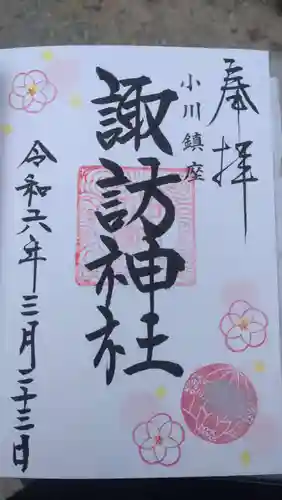 奉拝
小川鎮座
諏訪神社
令和六年三月二十三日